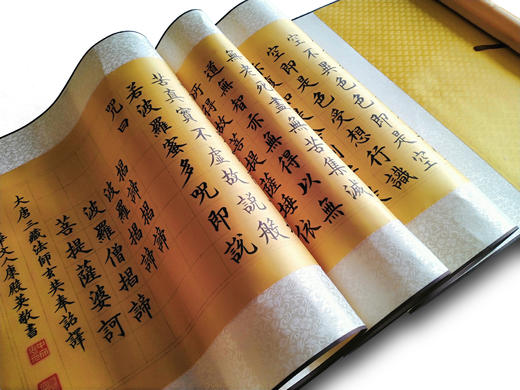 空不異色色即是空
空即是色受想行識
無老死盡無苦集滅
道無智亦無得以無
所得故菩提薩埵依
苦真實不虛故說般
若波羅蜜多咒即說
咒曰
揭諦揭諦
波羅揭諦
波羅僧揭諦
菩提薩婆訶
大唐三藏法師玄奘奉詔譯
大康殿英敬書